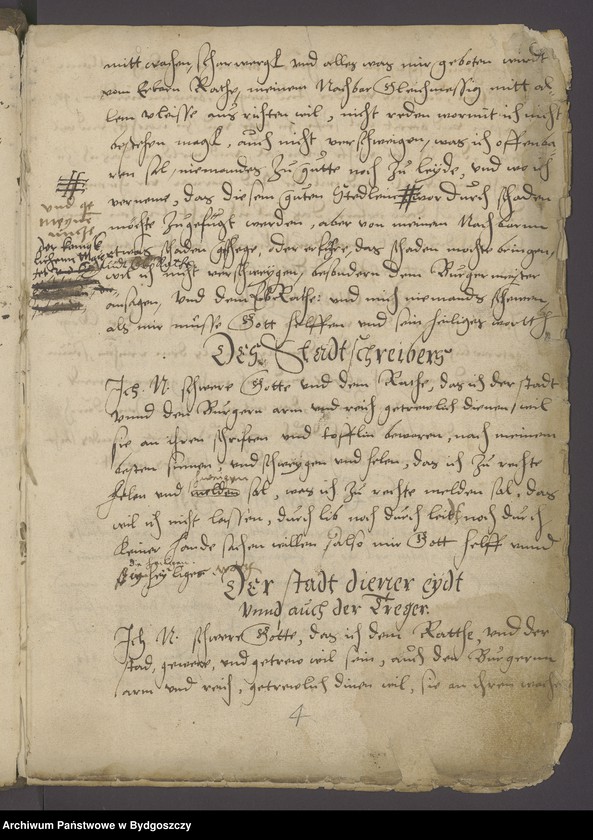 mitt wachen, scharwergk, und alles was mir geboten wirdt
vom Erbarn Rathe, meinem Nachbar Gleichmessig mitt al
lem vleisse aus richten wil, nicht reden wormit ich nicht
bestehen magk, auch nicht verschweigen, was ich offenba
ren sal, niemandes zu gutte noch zu leyde, und wo ich
verneme, das diesem guten Stedlein # wor durch schaden
möchte zugefugt werden, aber von meinem Nachbarnn
etwas schaden, oder erfure, das schaden mochte bringen,
wil ich nicht verschweygen, besondern dem Burgermeister
ansagen, und dem Rathe: und mich niemands schewen,
als mir müsse Gott helffen und sein heiliges wortt
#
und
meyne
nicht
der königk
lichenn May
Des Stadtschreibers
Ich N: schwere Gotte und dem Rathe, das ich der stadt
unnd den Burgern arm und reich getrewlich dienen, wil
sie an ihren schrifften und tofflin bewaren, nach meinem
besten sinnen, und schweygen und helen, das ich zu rechte
helen und melden sal, was ich zu rechte melden sal, das
schweigen
wil ich nicht lassen, durch lib noch durch leidt noch durch
keiner hande sachen willen, also mir Gott helff unnd
sein heyliges wortt
Der stadt diener eydt
unnd auch der Treger.
Ich N: schwere Gotte, das ich dem Ratthe, und der
stad, gewere, und getrew wil sein, auch den Burgernn
arm und reich, getrewlich dinen wil, sie an ihren wache
4
Archiwum Państwowe w Bydgoszczy